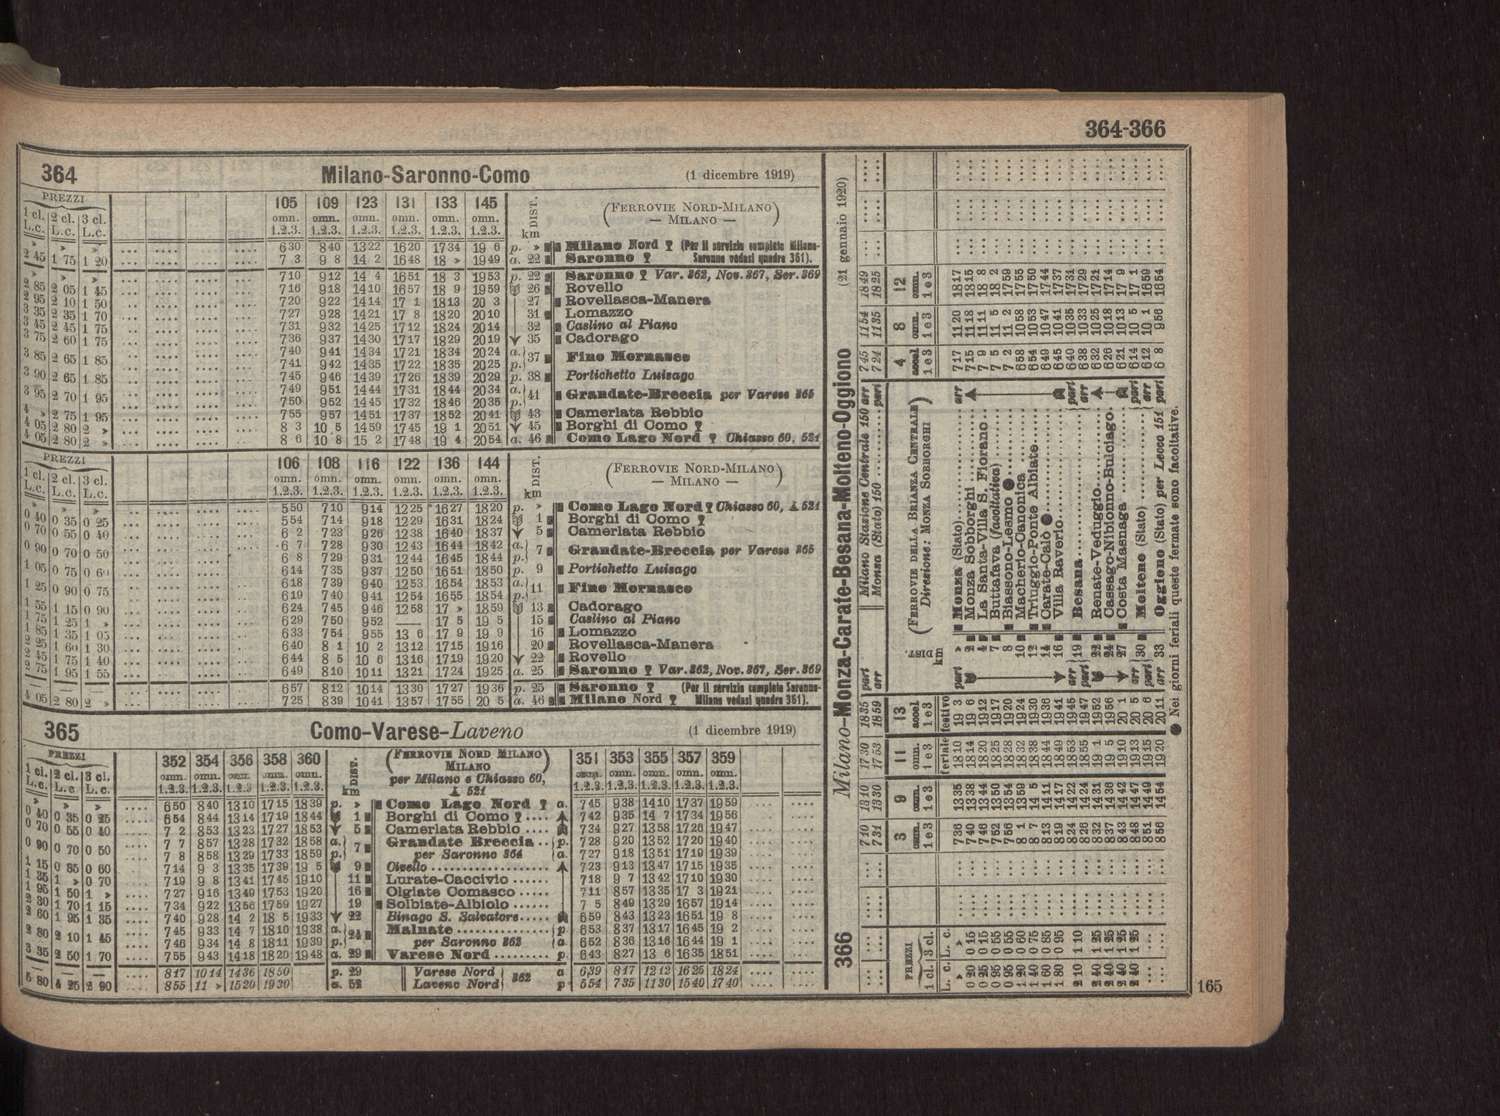 364-366
364 Milano-Saronno-Como (1 dicembre 1919)
PREZZI 105 109 123 131 133 145 DIST. (FERROVIE NORD-MILANO)
1 cl. 2 cl. 3 cl. omn. omn. omn. omn. omn. omn. — MILANO —
L.c. L.c. L.c. 1.2.3. 1.2.3. 1.2.3. 1.2.3. 1.2.3. 1.2.3. km
» » » 6 30 8 40 13 22 16 20 17 34 19 6 p. » Milano Nord (Per il servizio completo Milano-
2 45 1 75 1 20 7 3 9 8 14 2 16 48 18 » 19 49 a. 22 Saronno Saronno vedasi quadro 361).
» » » 7 10 9 12 14 4 16 51 18 3 19 53 p. 22 Saronno Var. 362, Nov. 367, Ser. 369
2 85 2 05 1 45 7 16 9 18 14 10 16 57 18 9 19 59 26 Rovello
2 95 2 10 1 50 7 20 9 22 14 14 17 1 18 13 20 3 27 Rovellasca-Manera
3 35 2 35 1 70 7 27 9 28 14 21 17 8 18 20 20 10 31 Lomazzo
3 45 2 45 1 75 7 31 9 32 14 25 17 12 18 24 20 14 32 Caslino al Piano
3 75 2 60 1 85 7 36 9 37 14 30 17 17 18 29 20 19 35 Cadorago
3 85 2 65 1 85 7 40 9 41 14 34 17 21 18 34 20 24 a. 37 Fino Mornasco
7 41 9 42 14 35 17 22 18 35 20 25 p.
3 90 2 65 1 85 7 45 9 46 14 39 17 26 18 39 20 29 p. 38 Portichetto Luisago
3 95 2 70 1 95 7 49 9 51 14 44 17 31 18 44 20 34 a. 41 Grandate-Breccia per Varese 365
7 50 9 52 14 45 17 32 18 46 20 35 p.
4 » 2 75 1 95 7 55 9 57 14 51 17 37 18 52 20 41 43 Camerlata Rebbio
4 05 2 80 2 » 8 3 10 5 14 59 17 45 19 1 20 51 45 Borghi di Como
4 05 2 80 2 » 8 6 10 8 15 2 17 48 19 4 20 54 a. 46 Como Lago Nord Chiasso 60, 521
PREZZI 106 108 116 122 136 144 DIST. (FERROVIE NORD-MILANO)
1 cl. 2 cl. 3 cl. omn. omn. omn. omn. omn. omn. — MILANO —
L.c. L.c. L.c. 1.2.3. 1.2.3. 1.2.3. 1.2.3. 1.2.3. 1.2.3. km
» » » 5 50 7 10 9 14 12 25 16 27 18 20 p. » Como Lago Nord Chiasso 60, 521
0 40 0 35 0 25 5 54 7 14 9 18 12 29 16 31 18 24 1 Borghi di Como
0 70 0 55 0 40 6 2 7 23 9 26 12 38 16 40 18 37 5 Camerlata Rebbio
0 90 0 70 0 50 6 7 7 28 9 30 12 43 16 44 18 42 a. 7 Grandate-Breccia per Varese 365
6 8 7 29 9 31 12 44 16 45 18 44 p.
1 05 0 75 0 60 6 14 7 35 9 37 12 50 16 51 18 50 p. 9 Portichetto Luisago
1 25 0 90 0 75 6 18 7 39 9 40 12 53 16 54 18 53 a. 11 Fino Mornasco
6 19 7 40 9 41 12 54 16 55 18 54 p.
1 55 1 15 0 90 6 24 7 45 9 46 12 58 17 » 18 59 13 Cadorago
1 75 1 25 1 » 6 29 7 50 9 52 — 17 5 19 5 15 Caslino al Piano
1 85 1 35 1 05 6 33 7 54 9 55 13 6 17 9 19 9 16 Lomazzo
2 25 1 60 1 30 6 40 8 1 10 2 13 12 17 15 19 16 20 Rovellasca-Manera
2 45 1 75 1 40 6 44 8 5 10 6 13 16 17 19 19 20 22 Rovello
2 75 1 95 1 55 6 49 8 10 10 11 13 21 17 24 19 25 a. 25 Saronno Var. 362, Nov. 367, Ser. 369
— — — 6 57 8 12 10 14 13 30 17 27 19 36 p. 25 Saronno (Per il servizio completo Saronno-
4 05 2 80 2 » 7 25 8 39 10 41 13 57 17 55 20 5 a. 46 Milano Nord Milano vedasi quadro 361).
365 Como-Varese-Laveno (1 dicembre 1919)
PREZZI 352 354 356 358 360 DIST. (FERROVIE NORD MILANO) 351 353 355 357 359
1 cl. 2 cl. 3 cl. omn. omn. omn. omn. omn. MILANO omn. omn. omn. omn. omn.
L.c. L.c L.c. 1.2.3. 1.2.3. 1.2.3. 1.2.3. 1.2.3. km per Milano e Chiasso 60, 521 1.2.3. 1.2.3. 1.2.3. 1.2.3. 1.2.3.
» » » 6 50 8 40 13 10 17 15 18 39 p. » Como Lago Nord a. 7 45 9 38 14 10 17 37 19 59
0 40 0 35 0 25 6 54 8 44 13 14 17 19 18 44 1 Borghi di Como 7 42 9 35 14 7 17 34 19 56
0 70 0 55 0 40 7 2 8 53 13 23 17 27 18 53 5 Camerlata Rebbio 7 34 9 27 13 58 17 26 19 47
0 90 0 70 0 50 7 7 8 57 13 28 17 32 18 58 a. 7 Grandate Breccia p. 7 28 9 20 13 52 17 20 19 40
7 8 8 58 13 29 17 33 18 59 p. per Saronno 364 a. 7 27 9 18 13 51 17 19 19 39
1 15 0 85 0 60 7 14 9 3 13 35 17 39 19 5 9 Civello 7 23 9 13 13 47 17 15 19 35
1 35 1 » 0 70 7 19 9 8 13 41 17 45 19 10 11 Lurate-Caccivio 7 18 9 7 13 42 17 10 19 30
1 95 1 50 1 » 7 27 9 16 13 49 17 53 19 20 16 Olgiate Comasco 7 11 8 57 13 35 17 3 19 21
2 30 1 70 1 15 7 34 9 22 13 56 17 59 19 27 19 Solbiate-Albiolo 7 5 8 49 13 29 16 57 19 14
2 60 1 95 1 35 7 40 9 28 14 2 18 5 19 33 22 Binago S. Salvatore 6 59 8 43 13 23 16 51 19 8
2 80 2 10 1 45 7 45 9 33 14 7 18 10 19 38 a. 24 Malnate p. 6 53 8 37 13 17 16 45 19 2
7 46 9 34 14 8 18 11 19 39 p. per Saronno 362 a. 6 52 8 36 13 16 16 44 19 1
3 35 2 50 1 70 7 55 9 43 14 18 18 20 19 48 a. 29 Varese Nord p. 6 43 8 27 13 6 16 35 18 51
— — — 8 17 10 14 14 36 18 50 p. 29 Varese Nord 362 a 6 39 8 17 12 12 16 25 18 24
5 80 4 25 2 90 8 55 11 » 15 20 19 30 a. 52 Laveno Nord p 5 54 7 35 11 30 15 40 17 40
366 Milano-Monza-Carate-Besana-Molteno-Oggiono (21 gennaio 1920)
7 10 13 10 17 30 18 35 part Milano Stazione Centrale 150 arr 7 45 11 54 18 49
7 31 13 30 17 53 18 59 arr Monza (Stato) 150 part 7 24 11 35 18 25
PREZZI 3 9 11 13 DIST. (FERROVIE DELLA BRIANZA CENTRALE) 4 8 12
1 cl. 3 cl. omn. omn. omn. accel. Direzione: MONZA SOBBORGHI accel omn. omn.
L. c. L. c. 1 e 3 1 e 3 1 e 3 1 e 3 km 1 e 3 1 e 3 1 e 3
feriale festivo
» » 7 36 13 35 18 10 19 3 part » Monza (Stato) arr 7 17 11 20 18 17
0 20 0 15 7 40 13 38 18 14 19 6 2 Monza Sobborghi 7 15 11 18 18 15
0 25 0 15 7 46 13 44 18 20 19 12 4 La Santa-Villa S. Fiorano 7 9 11 11 18 8
0 95 0 55 7 52 13 50 18 25 19 17 7 Buttafava (facoltativa) 7 5 11 5 18 2
0 95 0 55 7 56 13 54 18 28 19 20 8 Biassono-Lesmo ● 7 2 11 2 17 59
1 20 0 60 8 1 13 59 18 32 19 24 10 Macherio-Canonica 6 58 10 58 17 55
1 40 0 75 8 7 14 5 18 38 19 30 12 Triuggio-Ponte Albiate 6 54 10 53 17 50
1 60 0 85 8 13 14 11 18 44 19 36 14 Carate-Calò ● 6 49 10 47 17 44
1 80 0 95 8 19 14 17 18 49 19 41 16 Villa Raverio 6 45 10 41 17 37
2 10 1 10 8 24 14 22 18 53 19 45 arr 19 Besana part 6 40 10 35 17 31
8 26 14 24 18 55 19 47 part arr 6 38 10 33 17 29
2 40 1 25 8 32 14 31 19 1 19 52 22 Renate-Veduggio 6 32 10 25 17 21
2 40 1 25 8 37 14 36 19 5 19 56 24 Cassago-Nibionno-Bulciago 6 26 10 18 17 14
2 40 1 25 8 43 14 42 19 10 20 1 27 Costa Masnaga 6 21 10 13 17 9
2 40 1 25 8 48 14 47 19 13 20 5 arr 30 Molteno (Stato) part 6 14 10 5 17 1
8 51 14 49 19 15 20 6 part arr 6 12 10 1 16 59
8 56 14 54 19 20 20 11 arr 33 Oggiono (Stato) per Lecco 151 part 6 8 9 56 16 54
● Nei giorni feriali queste fermate sono facoltative.
165